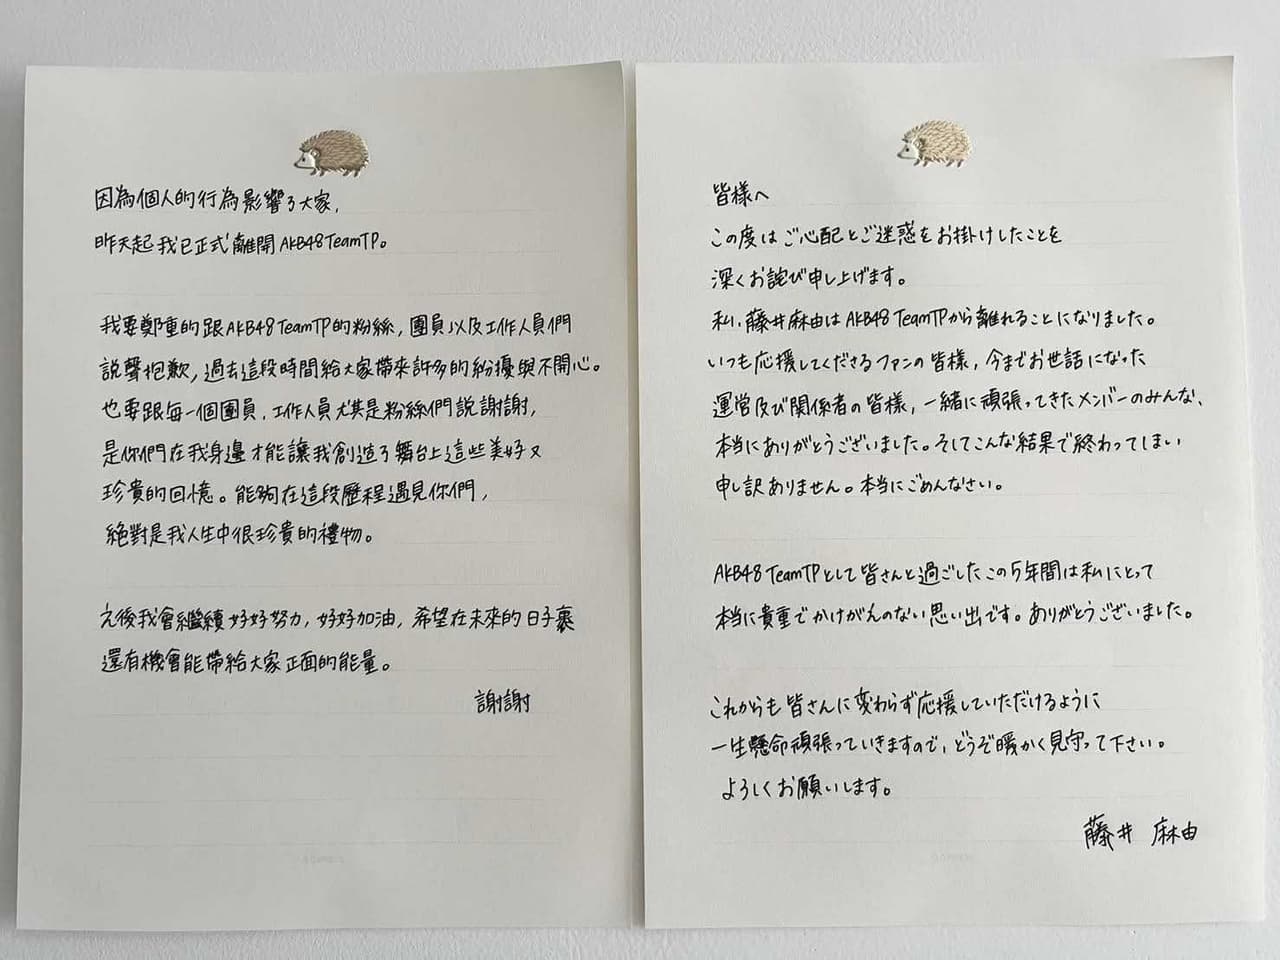 因為個人的行為影響了大家,
昨天起我已正式離開AKB48 TeamTP。
我要鄭重的跟AKB48 TeamTP的粉絲,團員以及工作人員們
說聲抱歉,過去這段時間給大家帶來許多的紛擾與不開心。
也要跟每一個團員,工作人員尤其是粉絲們說謝謝,
是你們在我身邊才能讓我創造了舞台上這些美好又
珍貴的回憶。能夠在這段歷程遇見你們,
絕對是我人生中很珍貴的禮物。
之後我會繼續好好努力,好好加油,希望在未來的日子裏
還有機會能帶給大家正面的能量。
謝謝
皆様へ
この度はご心配とご迷惑をお掛けしたことを
深くお詫び申し上げます。
私、藤井麻由はAKB48 TeamTPから離れることになりました。
いつも応援してくださるファンの皆様,今までお世話になった
運営及び関係者の皆様,一緒に頑張ってきたメンバーのみんな、
本当にありがとうございました。そしてこんな結果で終わってしまい
申し訳ありません。本当にごめんなさい。
AKB48 TeamTPとして皆さんと過ごしたこの5年間は私にとって
本当に貴重でかけがえのない思い出です。ありがとうございました。
これからも皆さんに変わらず応援していただけるように
一生懸命頑張っていきますので,どうぞ暖かく見守って下さい。
よろしくお願いします。
藤井 麻由